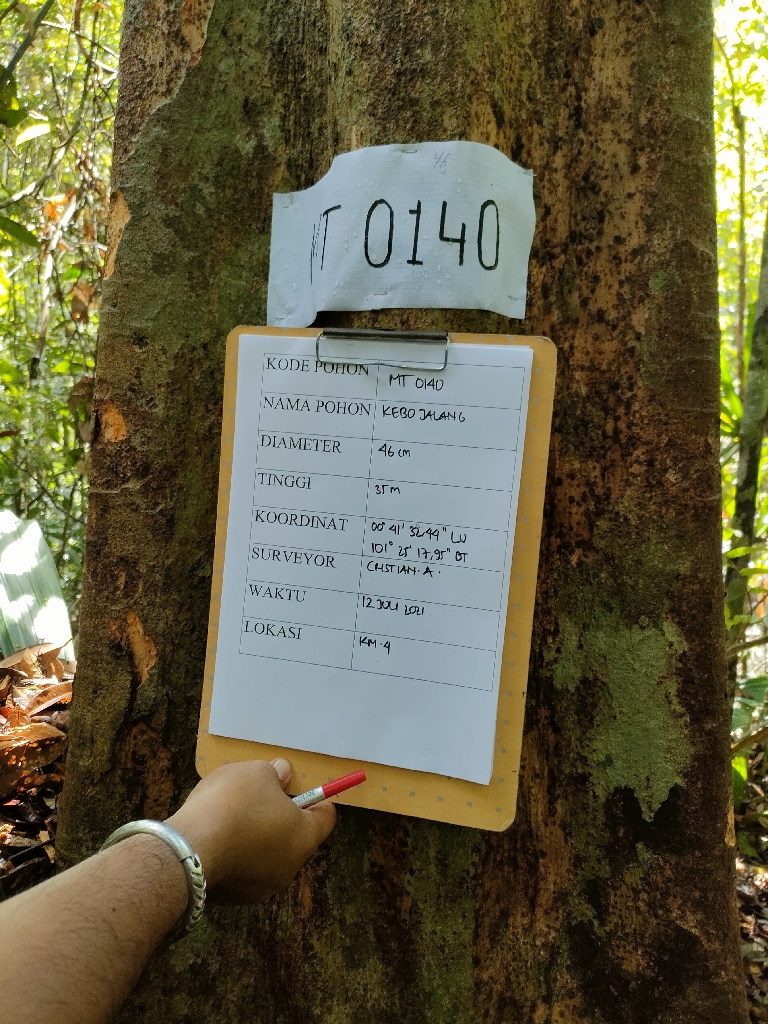 MT 0140
KODE POHON MT 0140
NAMA POHON KEBO JALANG
DIAMETER 46 cm
TINGGI 35 m
KOORDINAT 00° 41' 32,44" LU
101° 25' 17,95" BT
SURVEYOR CRISTIAN. A.
WAKTU 12 JULI 2021
LOKASI KM. 4